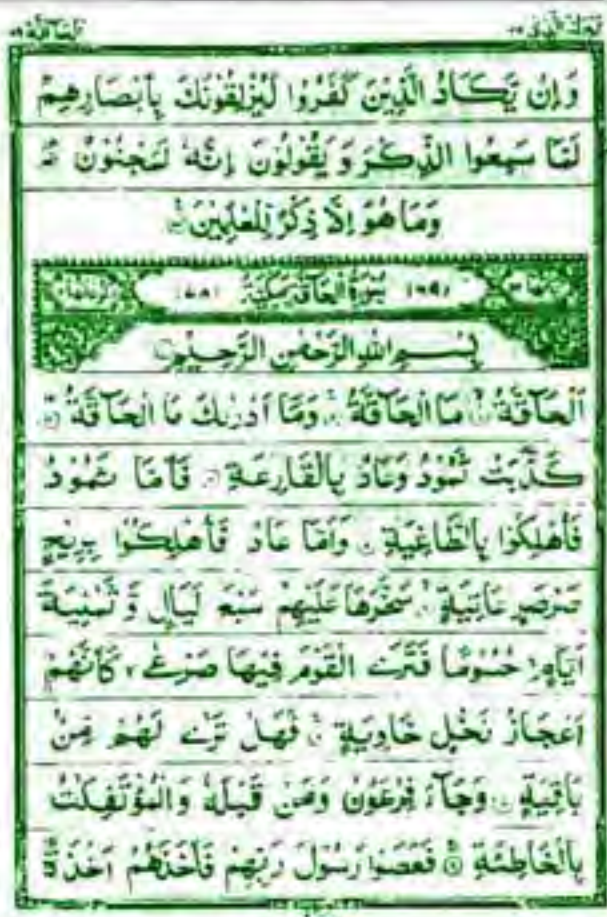 تبٰرك الذی ٢٩ الحآقة ٦٩
وَاِنْ يَّكَادُ الَّذِيْنَ كَفَرُوْا لَيُزْلِقُوْنَكَ بِاَبْصَارِهِمْ
لَمَّا سَمِعُوا الذِّكْرَ وَيَقُوْلُوْنَ اِنَّهٗ لَمَجْنُوْنٌ
وَمَا هُوَ اِلَّا ذِكْرٌ لِّلْعٰلَمِيْنَ
(٦٩) سُوْرَةُ الْحَآقَّةِ مَكِّيَّةٌ (٧٨)
بِسْمِ اللهِ الرَّحْمٰنِ الرَّحِيْمِ
اَلْحَآقَّةُ مَا الْحَآقَّةُ وَمَآ اَدْرٰىكَ مَا الْحَآقَّةُ
كَذَّبَتْ ثَمُوْدُ وَعَادٌ بِالْقَارِعَةِ فَاَمَّا ثَمُوْدُ
فَاُهْلِكُوْا بِالطَّاغِيَةِ وَاَمَّا عَادٌ فَاُهْلِكُوْا بِرِيْحٍ
صَرْصَرٍ عَاتِيَةٍ سَخَّرَهَا عَلَيْهِمْ سَبْعَ لَيَالٍ وَّثَمٰنِيَةَ
اَيَّامٍ حُسُوْمًا فَتَرَى الْقَوْمَ فِيْهَا صَرْعٰى كَاَنَّهُمْ
اَعْجَازُ نَخْلٍ خَاوِيَةٍ فَهَلْ تَرٰى لَهُمْ مِّنْۢ
بَاقِيَةٍ وَجَآءَ فِرْعَوْنُ وَمَنْ قَبْلَهٗ وَالْمُؤْتَفِكٰتُ
بِالْخَاطِئَةِ فَعَصَوْا رَسُوْلَ رَبِّهِمْ فَاَخَذَهُمْ اَخْذَةً